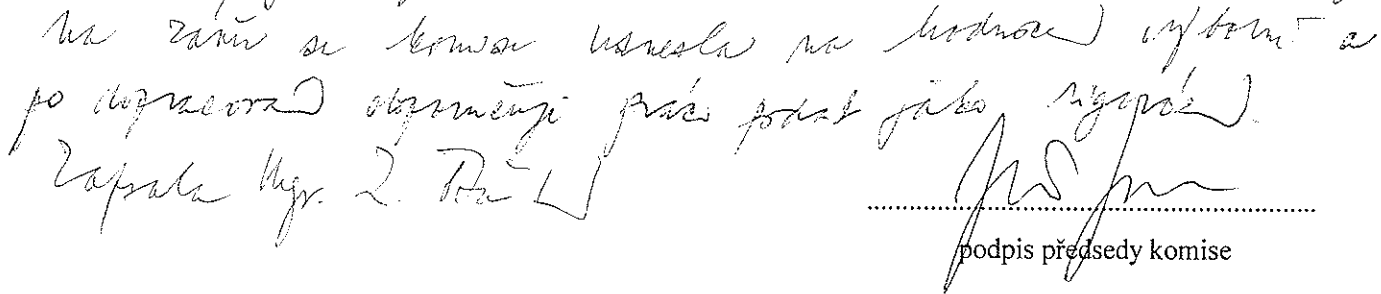 na závěr se komise usnesla na hodnocení výborně a
po dopracování doporučuji práci podat jako rigorózní.
Zapsala Mgr. Z.
podpis předsedy komise